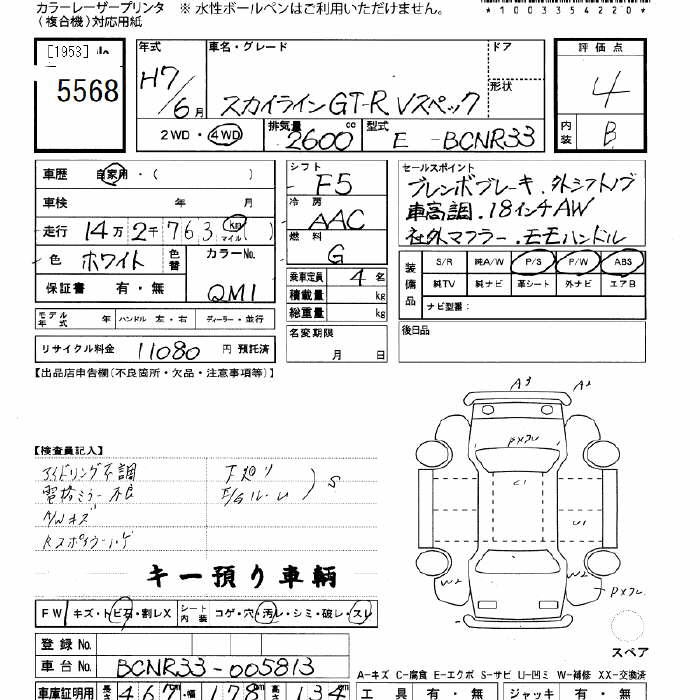 カラーレーザープリンタ ※ 水性ボールペンはご利用いただけません。
(複合機)対応用紙 *1003354220*
[1953] 5568
年式 H7/6月
車名・グレード スカイラインGT-R Vスペック
ドア
形状
評価点 4
内装 B
2WD・4WD 排気量 2600 cc 型式 E -BCNR33
車歴 自家用・( )
車検 年 月
走行 14万2千763 (km マイル)
色 ホワイト 色替 カラーNo. QM1
保証書 有・無
シフト F5
冷房 AAC
燃料 G
乗車定員 4 名
積載量 kg
総重量 kg
セールスポイント
ブレンボブレーキ.外シフトノブ
車高調.18インチAW
社外マフラー.モモハンドル
装備品 S/R 純A/W P/S P/W ABS
純TV 純ナビ 革シート 外ナビ エアB
ナビ型種:
モデル年式 年 ハンドル 左・右 ディーラー・並行
名変期限 月 日
後日品
リサイクル料金 11080 円 預託済
【出品店申告欄(不良箇所・欠品・注意事項等)】
A3 A2
PXフレ
【検査員記入】
アイドリング不調 下廻り
電格ミラー不良 S
A/Wキズ
C1
U1
キー預り車輌
W2 W2 PXフレ
FW キズ・トビ石・割レX シート内装 コゲ・穴・汚レ・シミ・破レ・スレ
スペア
登録No.
車台No. BCNR33-005813
A-キズ C-腐食 E-エクボ S-サビ U-凹ミ W-補修 XX-交換済
車庫証明用 長さ 467 幅 178 高さ 134
工具 有・無 ジャッキ 有・無